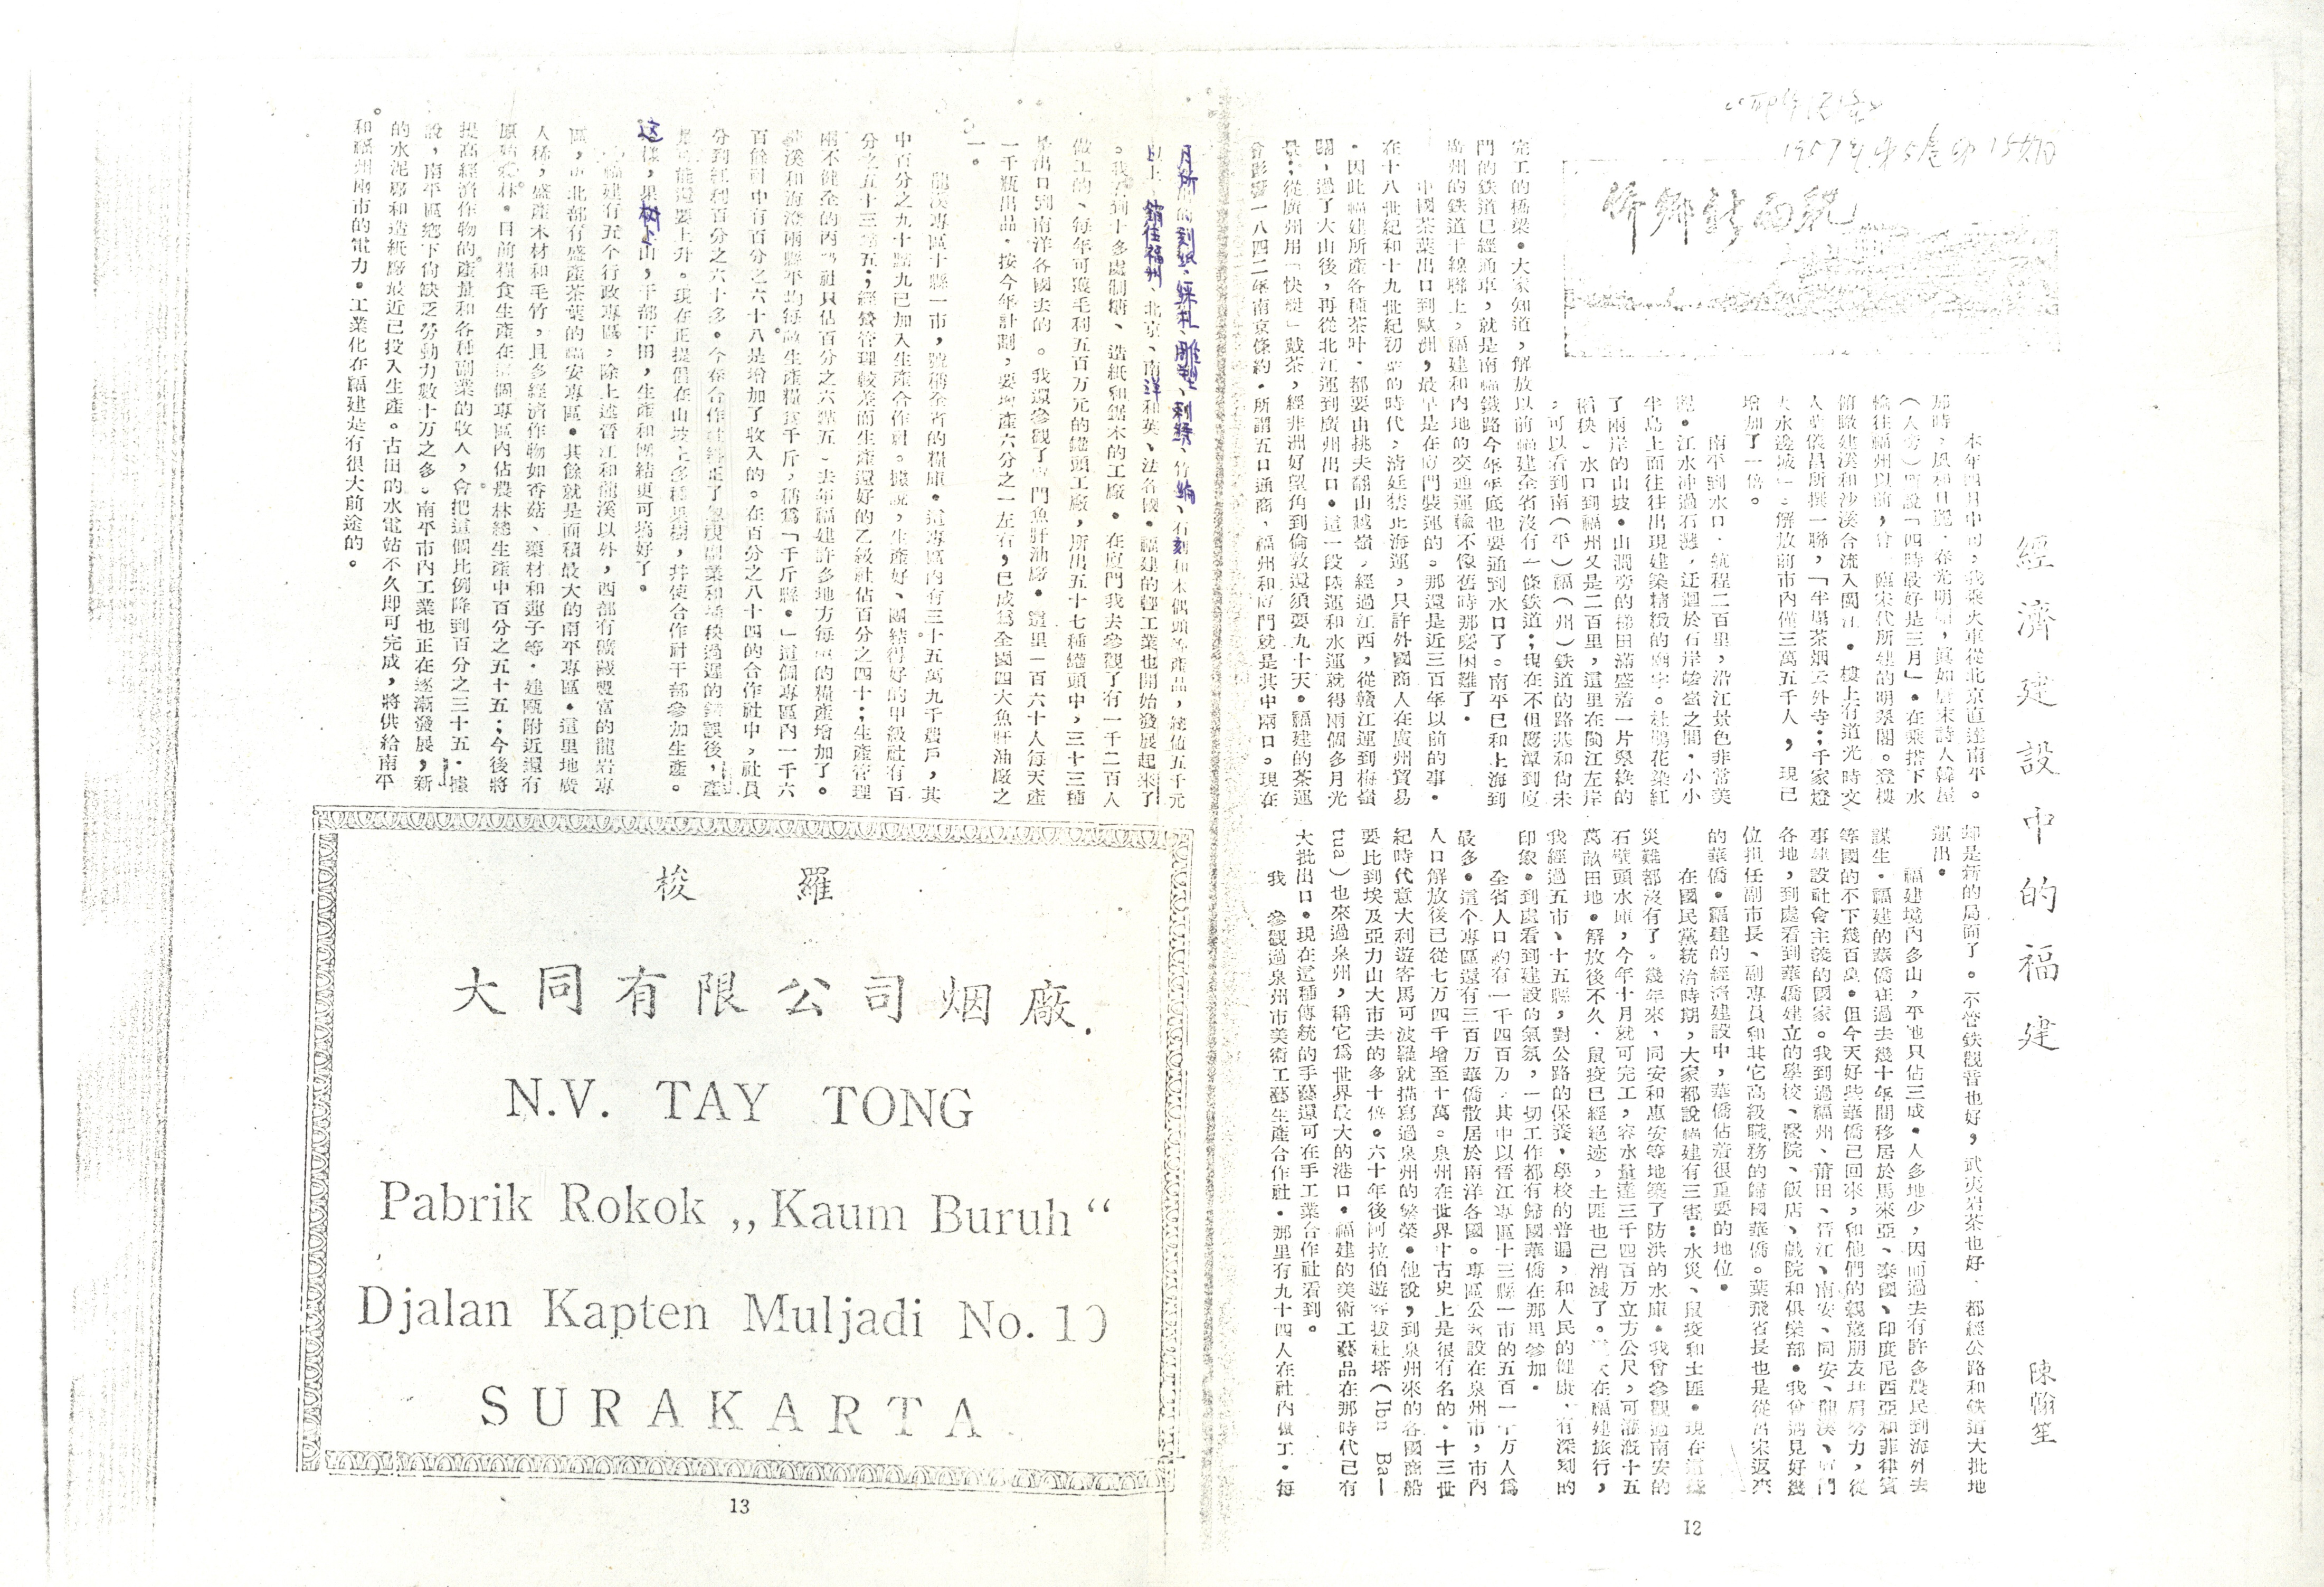 1957年
僑鄉新面貌
經濟建設中的福建
陳翰笙
本年四月中旬,我乘火車從北京直達南平。
那時,風和日麗,春光明媚,真如唐末詩人韓屋
(人旁)所說「四時最好是三月」。在乘搭下水
輪往福州以前,曾 臨宋代所建的明翠閣。登樓
俯瞰建溪和沙溪合流入閩江。樓上有道光時文
人 儀昌所撰一聯,「半場茶烟云外寺;千家燈
火水邊城」;解放前市內僅三萬五千人,現已
增加了一倍。
南平到水口,航程二百里,沿江景色非常美
麗。江水冲過石灘,迂迴於石岸 之間。小小
半島上面往往出現建築精緻的廟宇。杜鵑花染紅
了兩岸的山坡。山澗旁的梯田滿盛着一片翠綠的
稻秧。水口到福州又是二百里,這里在閩江左岸
,可以看到南(平)福(州)鉄道的路基和尚未
完工的橋梁。大家知道,解放以前福建全省沒有一條鉄道;現在不但鷹潭到廈
門的鉄道已經通車,就是南福鐵路今年年底也要通到水口了。南平已和上海到
廣州的鉄道干線聯上,福建和內地的交通運輸不像舊時那麼困難了。
中國茶葉出口到歐洲,最早是在廈門裝運的。那還是近三百年以前的事。
在十八世紀和十九世紀初葉的時代,清廷禁止海運,只許外國商人在廣州貿易
。因此福建所產各種茶叶,都要由挑夫翻山越嶺,經過江西,從贛江運到梅嶺
關,過了大山後,再從北江運到廣州出口。這一段陸運和水運就得兩個多月光
景;從廣州用「快艇」載茶,經非洲好望角到倫敦還須要九十天。福建的茶運
曾影響一八四二年南京條約。所謂五口通商,福州和廈門就是其中兩口。現在
却是新的局面了。不管鉄觀音也好,武夷岩茶也好,都經公路和鉄道大批地
運出。
福建境內多山,平地只佔三成。人多地少,因而過去有許多農民到海外去
謀生。福建的華僑在過去幾十年間移居於馬來亞、泰國、印度尼西亞和菲律賓
等國的不下幾百萬。但今天好些華僑已回來,和他們的親戚朋友并肩努力,從
事建設社會主義的國家。我到過福州、莆田、晉江、南安、同安、龍溪、廈門
各地,到處看到華僑建立的學校、醫院、飯店、戲院和俱樂部。我曾遇見好幾
位担任副市長、副專員和其它高級職務的歸國華僑。葉飛省長也是從呂宋返來
的華僑。福建的經濟建設中,華僑佔着很重要的地位。
在國民黨統治時期,大家都說福建有三害:水災、鼠疫和土匪。現在這些
災難都沒有了。幾年來,同安和惠安等地築了防洪的水庫。我曾參觀過南安的
石壁頭水庫,今年十月就可完工,容水量達三千四百万立方公尺,可灌溉十五
萬畝田地。解放後不久,鼠疫已經絕迹,土匪也已消滅了。 在福建旅行,
我經過五市、十五縣,對公路的保養,學校的普遍,和人民的健康,有深刻的
印象。到處看到建設的氣氛,一切工作都有歸國華僑在那里參加。
全省人口約有一千四百万,其中以晉江專區十三縣一市的五百一十万人為
最多。這个專區還有三百万華僑散居於南洋各國。專區公署設在泉州市,市內
人口解放後已從七万四千增至十萬。泉州在世界十古史上是很有名的。十三世
紀時代意大利遊客馬可波羅就描寫過泉州的繁榮。他說,到泉州來的各國商船
要比到埃及亞力山大市去的多十倍。六十年後阿拉伯遊客拔杜塔(Ibn Ba—
tua)也來過泉州,稱它爲世界最大的港口。福建的美術工藝品在那時代已有
大批出口。現在這種傳統的手藝還可在手工業合作社看到。
我 參觀過泉州市美術工藝生產合作社。那里有九十四人在社內做工。每
12
月所 的刻紙、綵札、雕塑、刺繡、竹編、石刻和木偶頭等產品,總值五千元
以上,銷往福州、北京、南洋和英、法各國。福建的輕工業也開始發展起來了
。我看到十多處制糖、造紙和鋸木的工廠。在廈門我去參觀了有一千二百人
做工的、每年可獲毛利五百万元的罐頭工廠,所出五十七種罐頭中,三十三種
是出口到南洋各國去的。我還參觀了廈門魚肝油廠。這里一百六十人每天產
一千瓶出品。按今年計劃,要增產六分之一左右,已成爲全國四大魚肝油廠之
一。
龍溪專區十縣一市,號稱全省的糧庫。這專區內有三十五萬九千農戶,其
中百分之九十點九已加入生產合作社。據說,生產好、團結得好的甲級社有百
分之五十三點五;經營管理較差而生產還好的乙級社佔百分之四十;生產管理
兩不健全的丙級社只佔百分之六點五。去年福建許多地方每畝的糧產增加了。
龍溪和海澄兩縣平均每畝生產糧食千斤,稱爲「千斤縣。」這個專區內一千六
百餘社中有百分之六十八是增加了收入的。在百分之八十四的合作社中,社員
分到紅利百分之六十多。今春合作社糾正了忽視副業和插秧過遲的錯誤後,產
量可能還要上升。現在正提倡在山坡上多種果樹,并使合作社干部參加生產。
这樣,果树上山,干部下田,生產和團結更可搞好了。
福建有五个行政專區,除上述晉江和龍溪以外,西部有礦藏豐富的龍岩專
區,東北部有盛產茶葉的福安專區。其餘就是面積最大的南平專區。這里地廣
人稀,盛產木材和毛竹,且多經濟作物如香菇、藥材和蓮子等。建甌附近還有
原始森林。目前糧食生產在這個專區內佔農林總生產中百分之五十五;今後將
提高經濟作物的產量和各種副業的收入,會把這個比例降到百分之三十五。據
說,南平區鄉下尚缺乏勞動力數十万之多。南平市內工業也正在逐漸發展,新
的水泥廠和造紙廠最近已投入生產。古田的水電站不久即可完成,將供給南平
和福州兩市的電力。工業化在福建是有很大前途的。
梭羅
大同有限公司烟廠.
N.V. TAY TONG
Pabrik Rokok „Kaum Buruh“
Djalan Kapten Muljadi No. 10
SURAKARTA
13